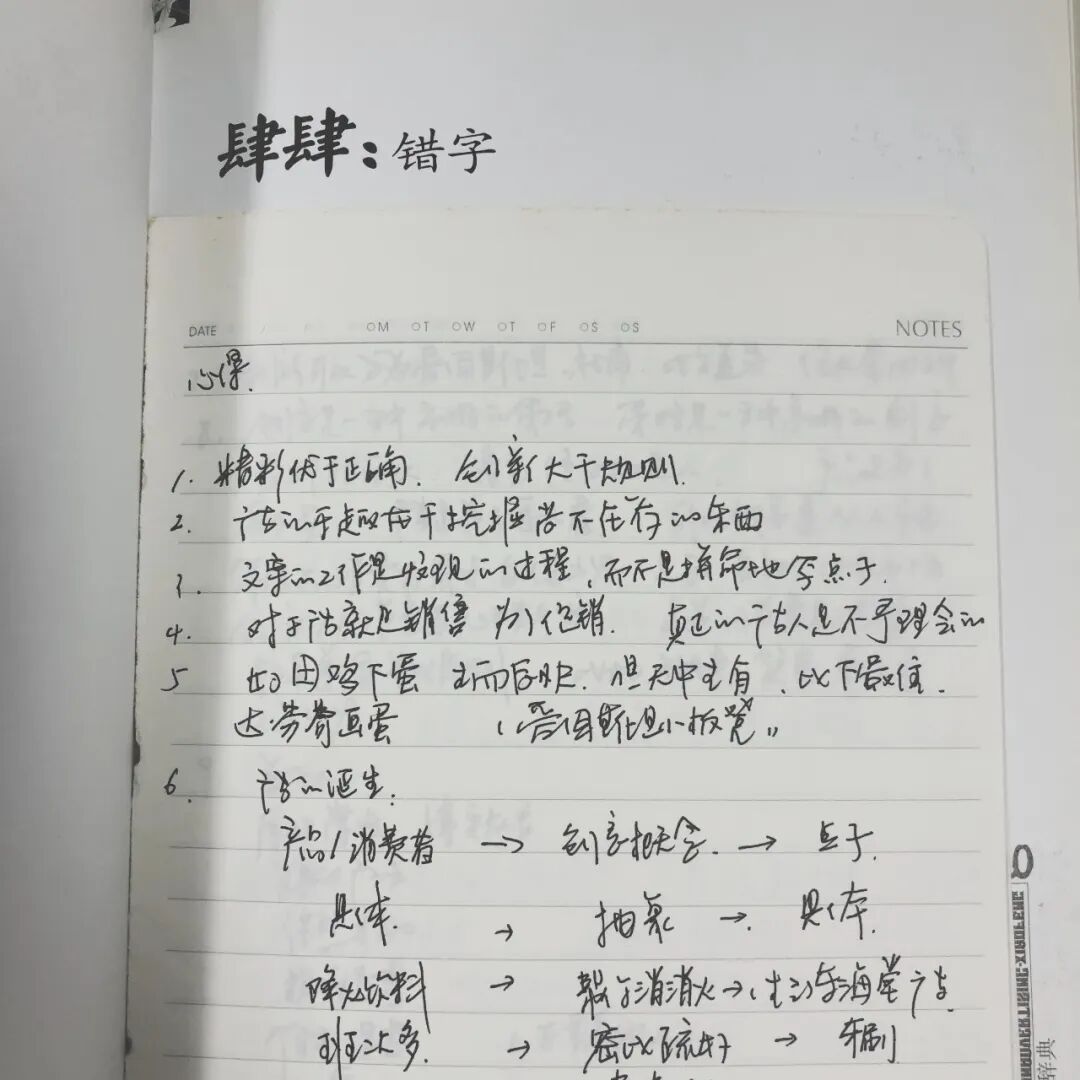 肆肆：错字
DATE OM OT OW OT OF OS OS NOTES
心得.
1. 精彩优于正确. 创新大于规则.
2. 广告的乐趣在于挖掘尚不在存的东西
3. 文案的工作是发现的过程,而不是拼命地写点子.
4. 对于广告就是销售 为了促销. 真正的广告人是不予理会的
5 如因鸡下蛋 主而后
达芬奇画蛋 (爱因斯坦小板凳)
6. 广告的诞生.
产品/消费者 → 创意概念. → 点子.
具体. → 抽象 → 具体.
降火饮料 → 消消火 → 广告
班次多. → 密比疏好 → 牙刷
辞典